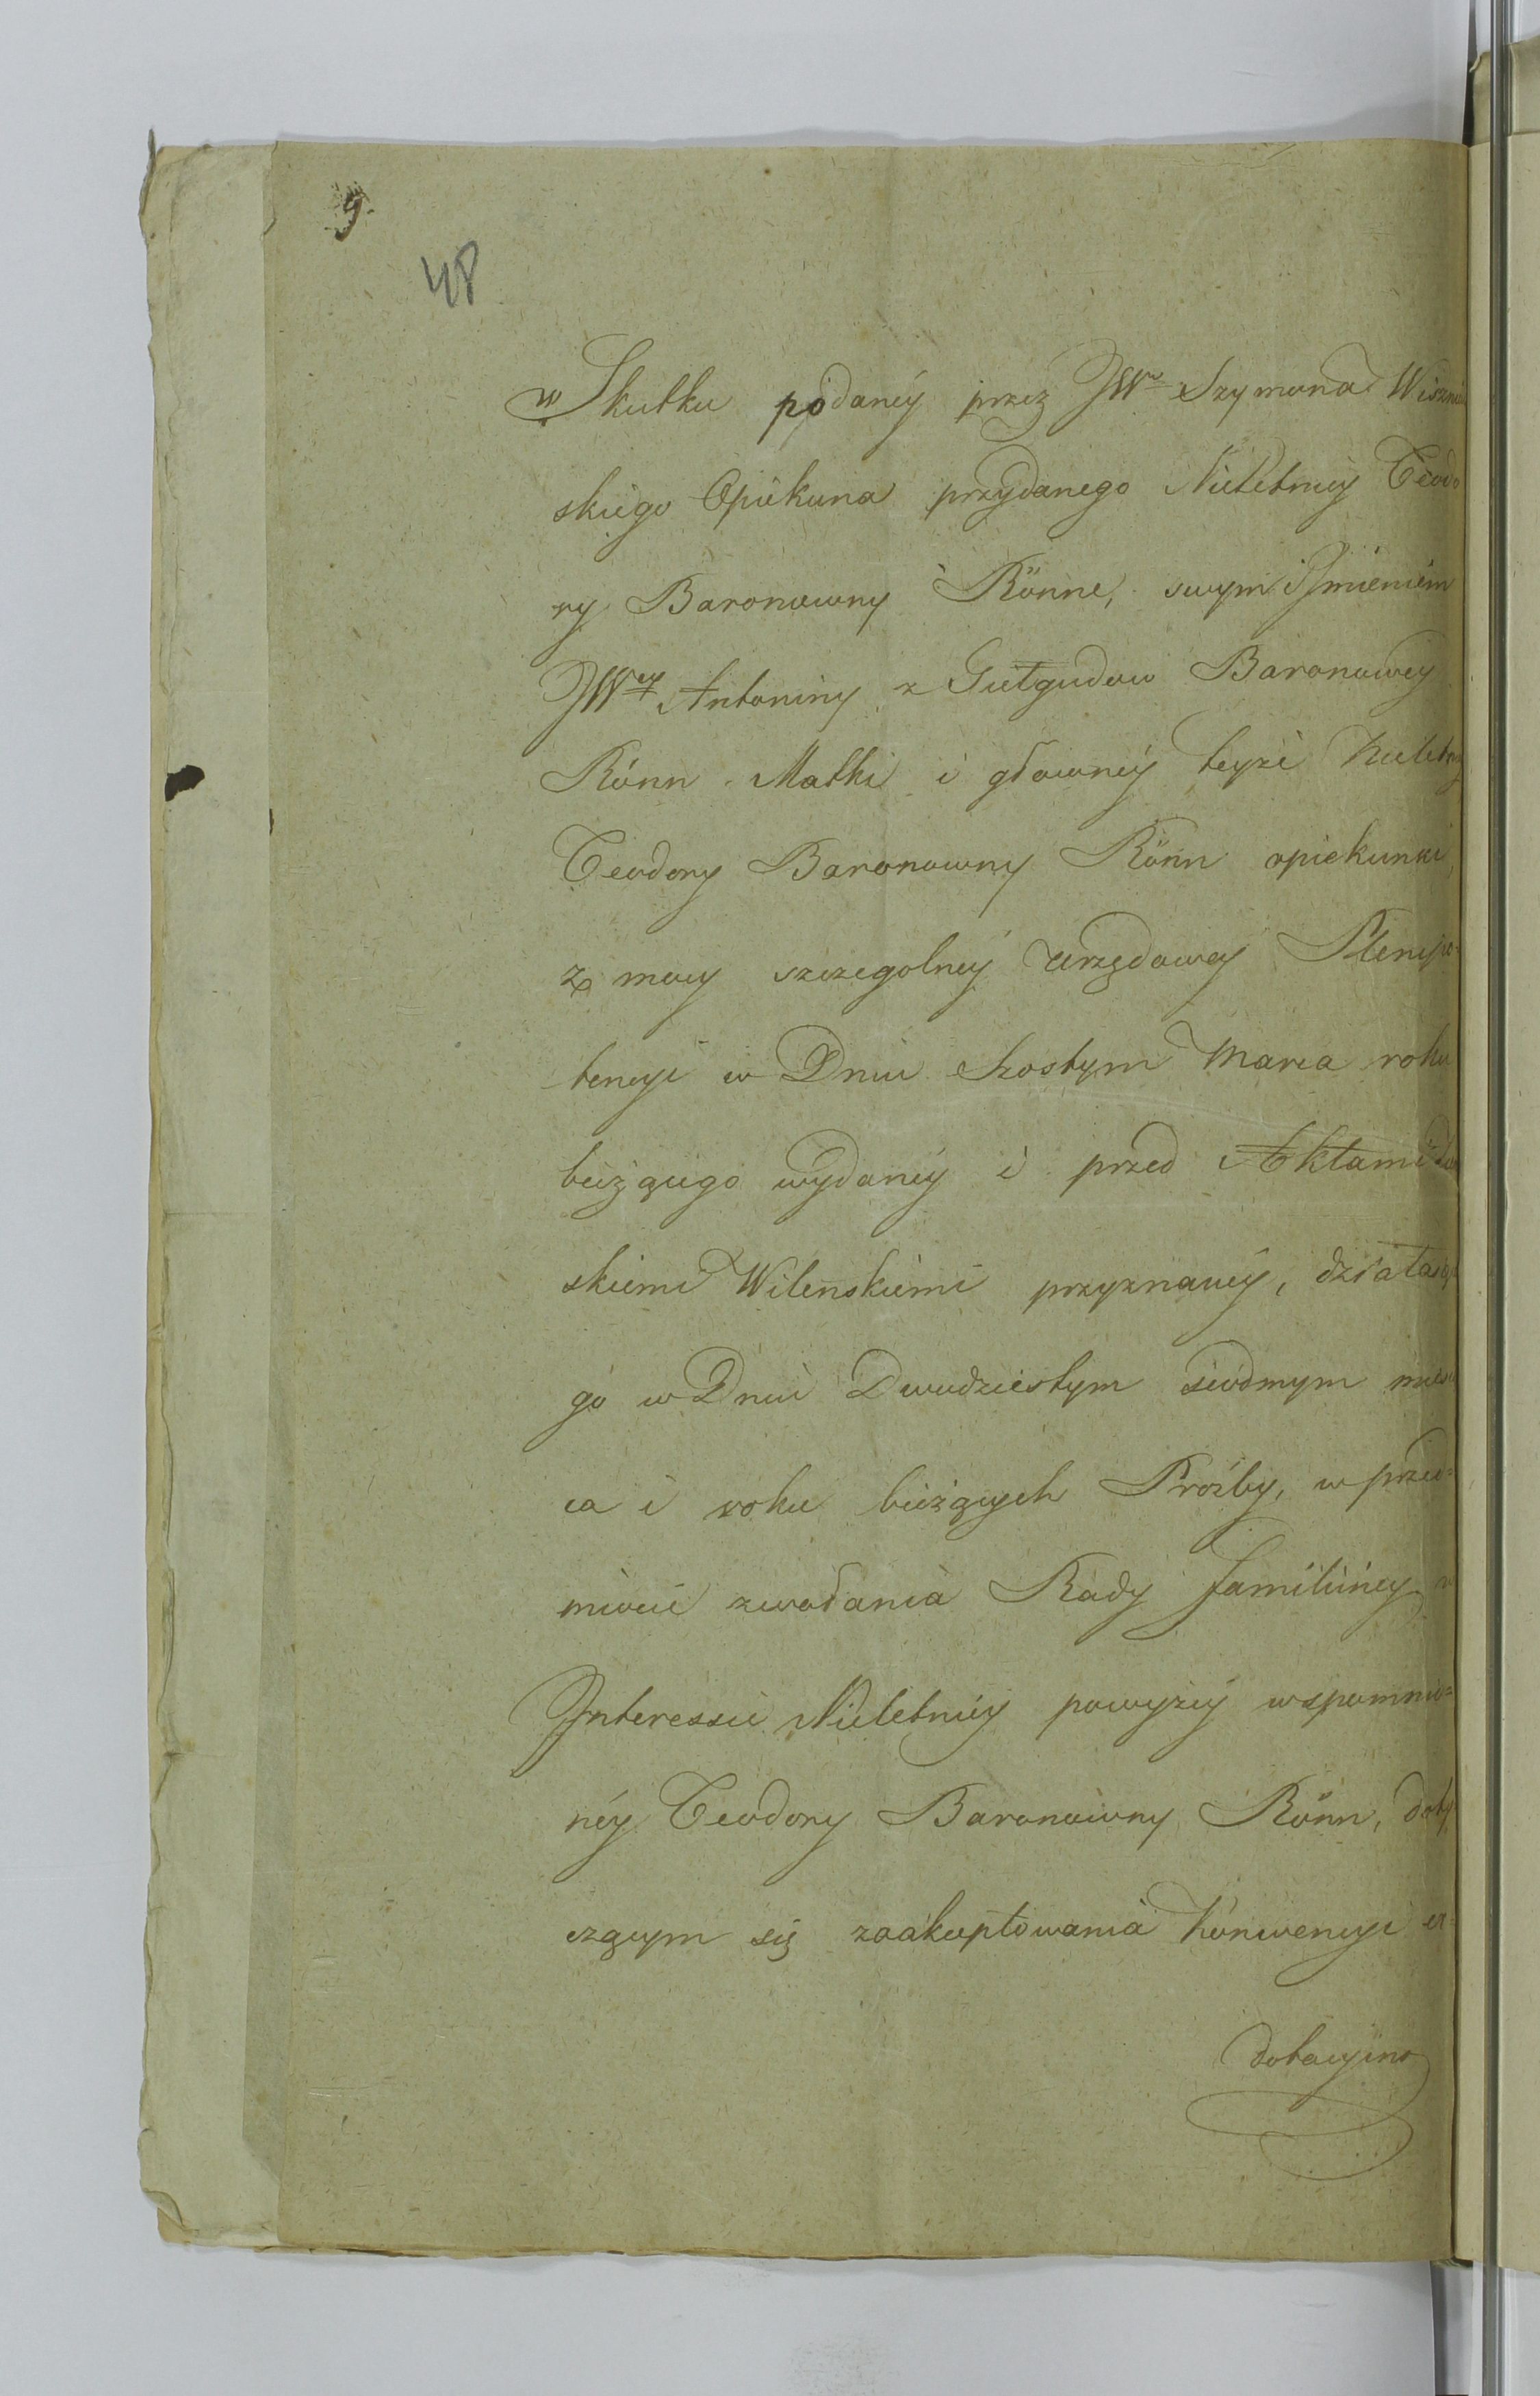 9.
48
w Skutku podaney przez JWo Szymona
skiego Opiekuna przydanego Nieletniey Teodo
ry Baronowny Rönne, swym i Jmieniem
JWey Antoniny z Giełgudow Baronowey
Rönn Matki i głowney teyże
Teodory Baronowny Rönn opiekunki
z mocy szczegolney urzędowey Plenipo=
tencyi w Dniu Szostym Marca roku
bieżącego wydaney i przed Aktami
skiemi Wilenskiemi przyznaney,
go w Dniu Dwudziestym siodmym
ca i roku bieżących Prozby, w przed=
miocie zwołania Rady familiiney w
Interessie Nieletniey powyżey wspomnio=
ney Teodory Baronowny Rönn, doty
czącym się zaakceptowania Konwencyi
dotacyino